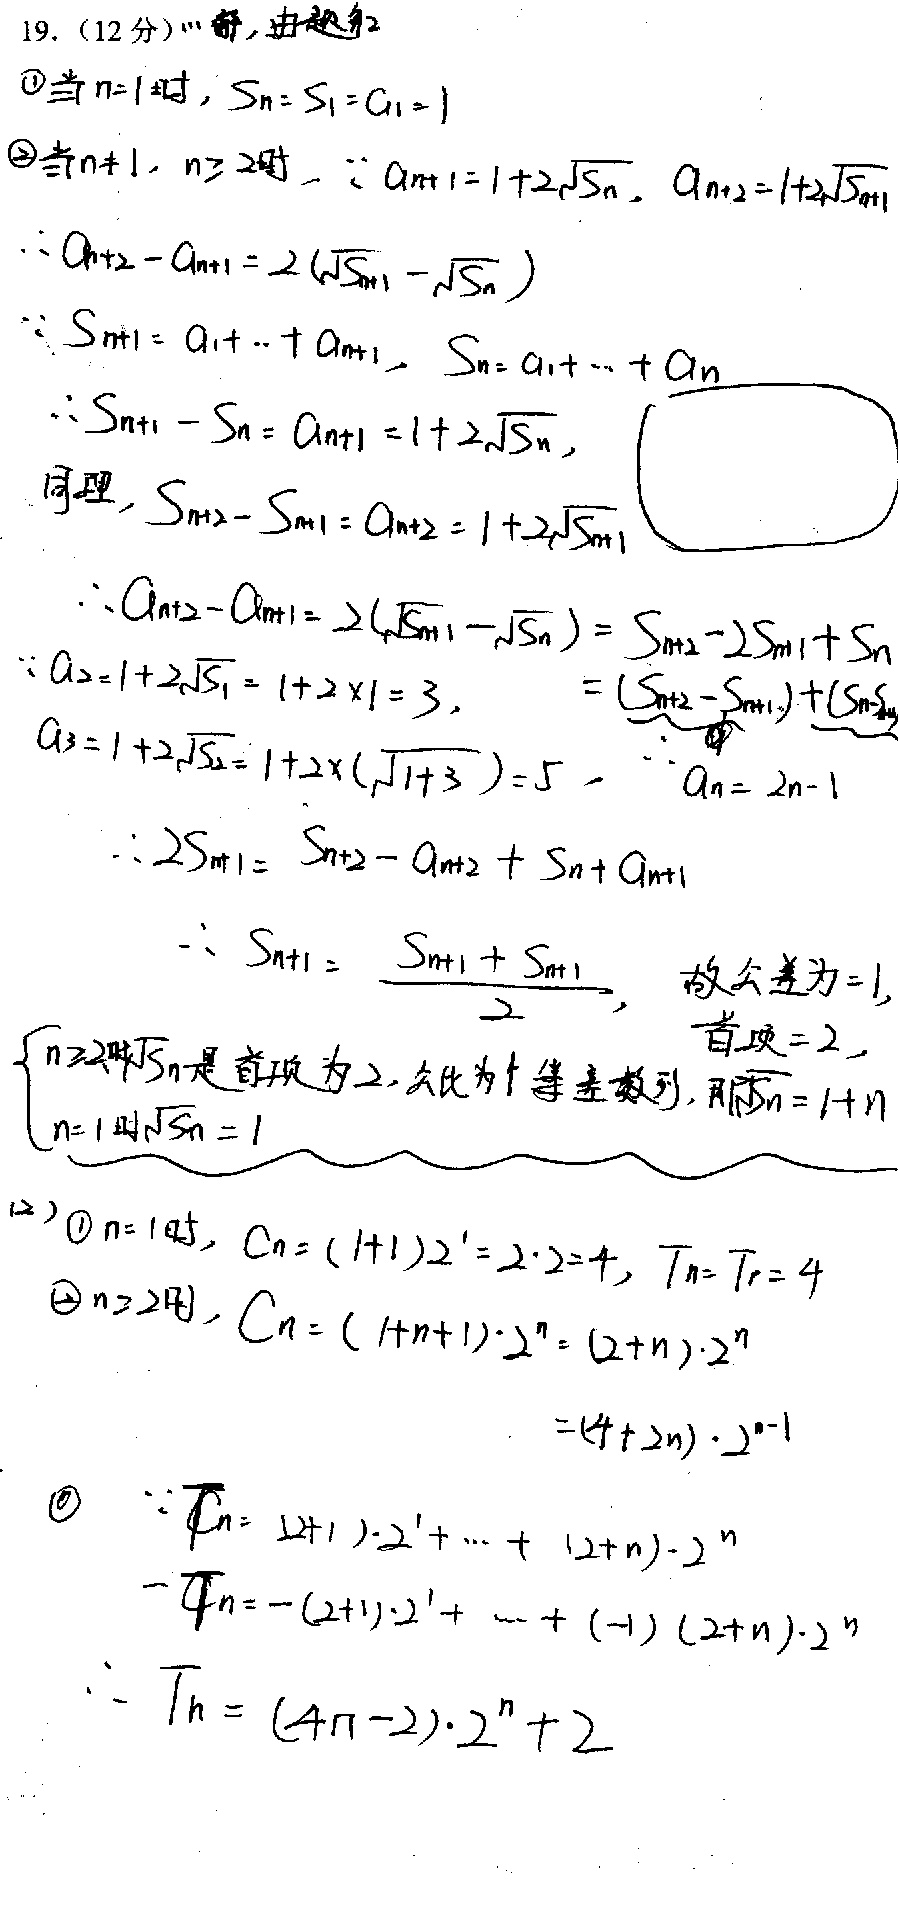 19.（12分）… 解，由题知
①当n=1时，Sn=S1=a1=1
②当n≠1，n≥2时，∵an+1=1+2√Sn，an+2=1+2√Sn+1
∴an+2-an+1=2(√Sn+1-√Sn)
∵Sn+1=a1+…+an+1，Sn=a1+…+an
∴Sn+1-Sn=an+1=1+2√Sn，
同理，Sn+2-Sn+1=an+2=1+2√Sn+1
∴an+2-an+1=2(√Sn+1-√Sn)=Sn+2-2Sn+1+Sn
=(Sn+2-Sn+1)+(Sn-Sn+1)
∵a2=1+2√S1=1+2×1=3，
a3=1+2√S2=1+2×(√1+3)=5，∴an=2n-1
∴2Sn+1=Sn+2-an+2+Sn+an+1
∴Sn+1=(Sn+1+Sn+1)/2，故公差为=1，
首项=2，
{n≥2时√Sn是首项为2，公比为1等差数列，则√Sn=1+n
n=1时√Sn=1
(2)①n=1时，Cn=(1+1)2¹=2·2=4，Tn=T1=4
②n≥2时，Cn=(1+n+1)·2ⁿ=(2+n)·2ⁿ
=(4+2n)·2ⁿ⁻¹
∵Tn=(2+1)·2¹+…+(2+n)·2ⁿ
-Tn=-(2+1)·2¹+…+(-1)(2+n)·2ⁿ
∴Tn=(4n-2)·2ⁿ+2